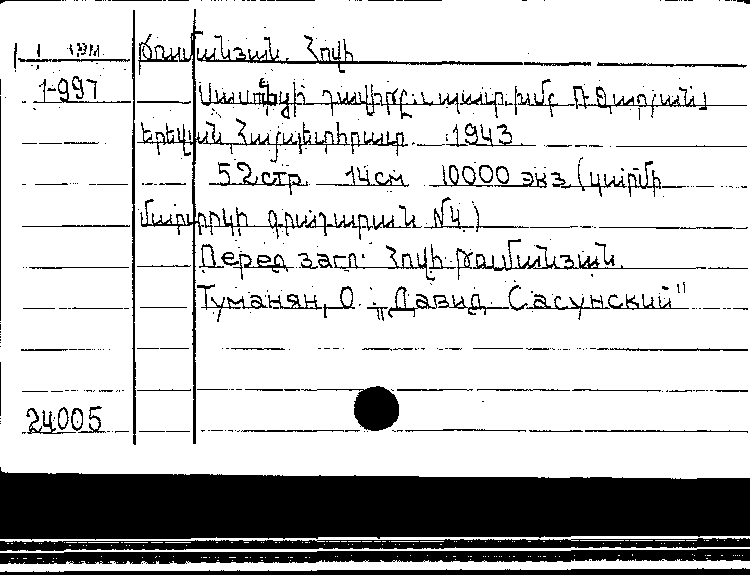 Թումանյան, Հովհ
1-997
Սասունցի Դավիթը: պատ. խմբ. Ռ. Զարյան
Երևան, Հայպետհրատ 1943
52 стр. 14 см 10000 экз (կարմիր
մարտիկի գրադարան №4)
Перед загл: Հովհ. Թումանյան.
Туманян, О. „Давид Сасунский"
24005